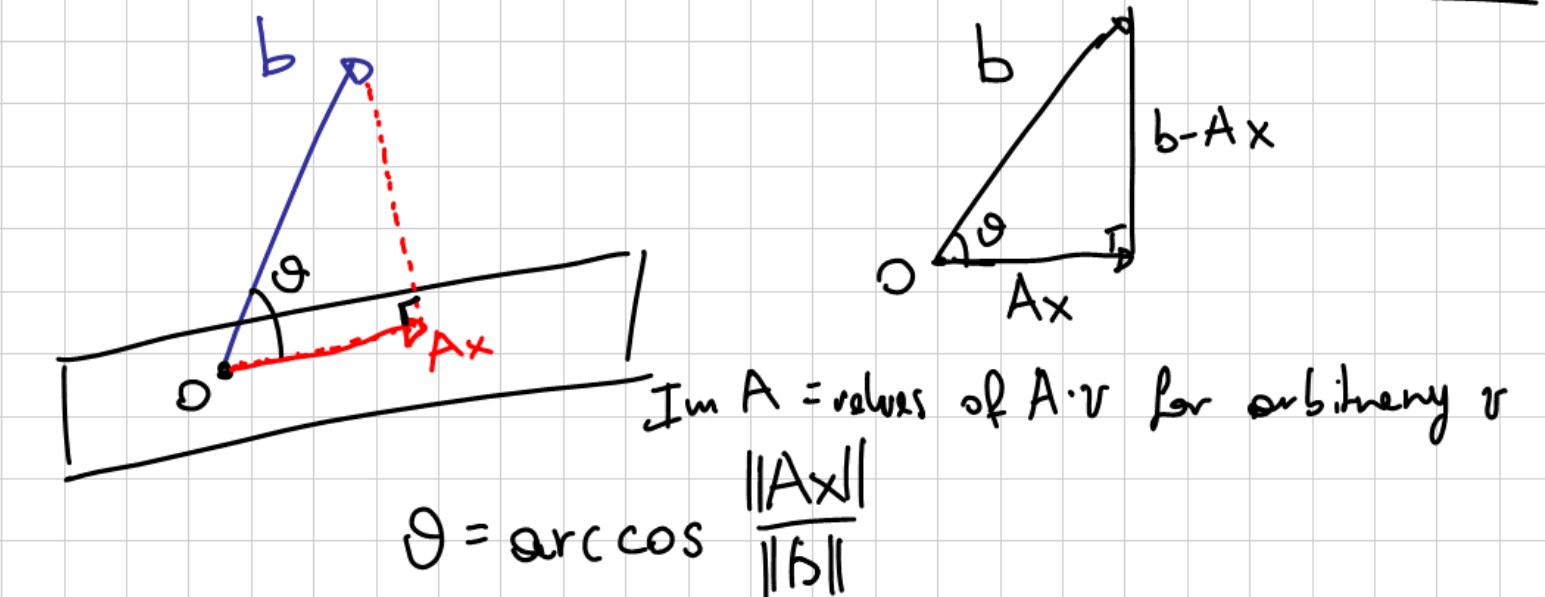 b
ϑ
O
Ax
b
ϑ
b-Ax
O
Ax
Im A = values of A·v for arbitrary v
ϑ = arccos ||Ax|| / ||b||